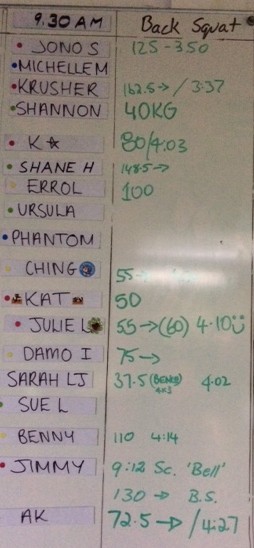 9.30 AM Back Squat
JONO S 125 - 3.50
MICHELLE M
KRUSHER 162.5→ / 3:37
SHANNON 40KG
K☆ 80/4.03
SHANE H 148.5→
ERROL 100
URSULA
PHANTOM
CHING 55-
KAT 50
JULIE L 55→(60) 4.10
DAMO I 75→
SARAH LJ 37.5 4.02
SUE L
BENNY 110 4:14
JIMMY 9:12 Sc. 'Bell'
130→ B.S.
AK 72.5→ /4:27